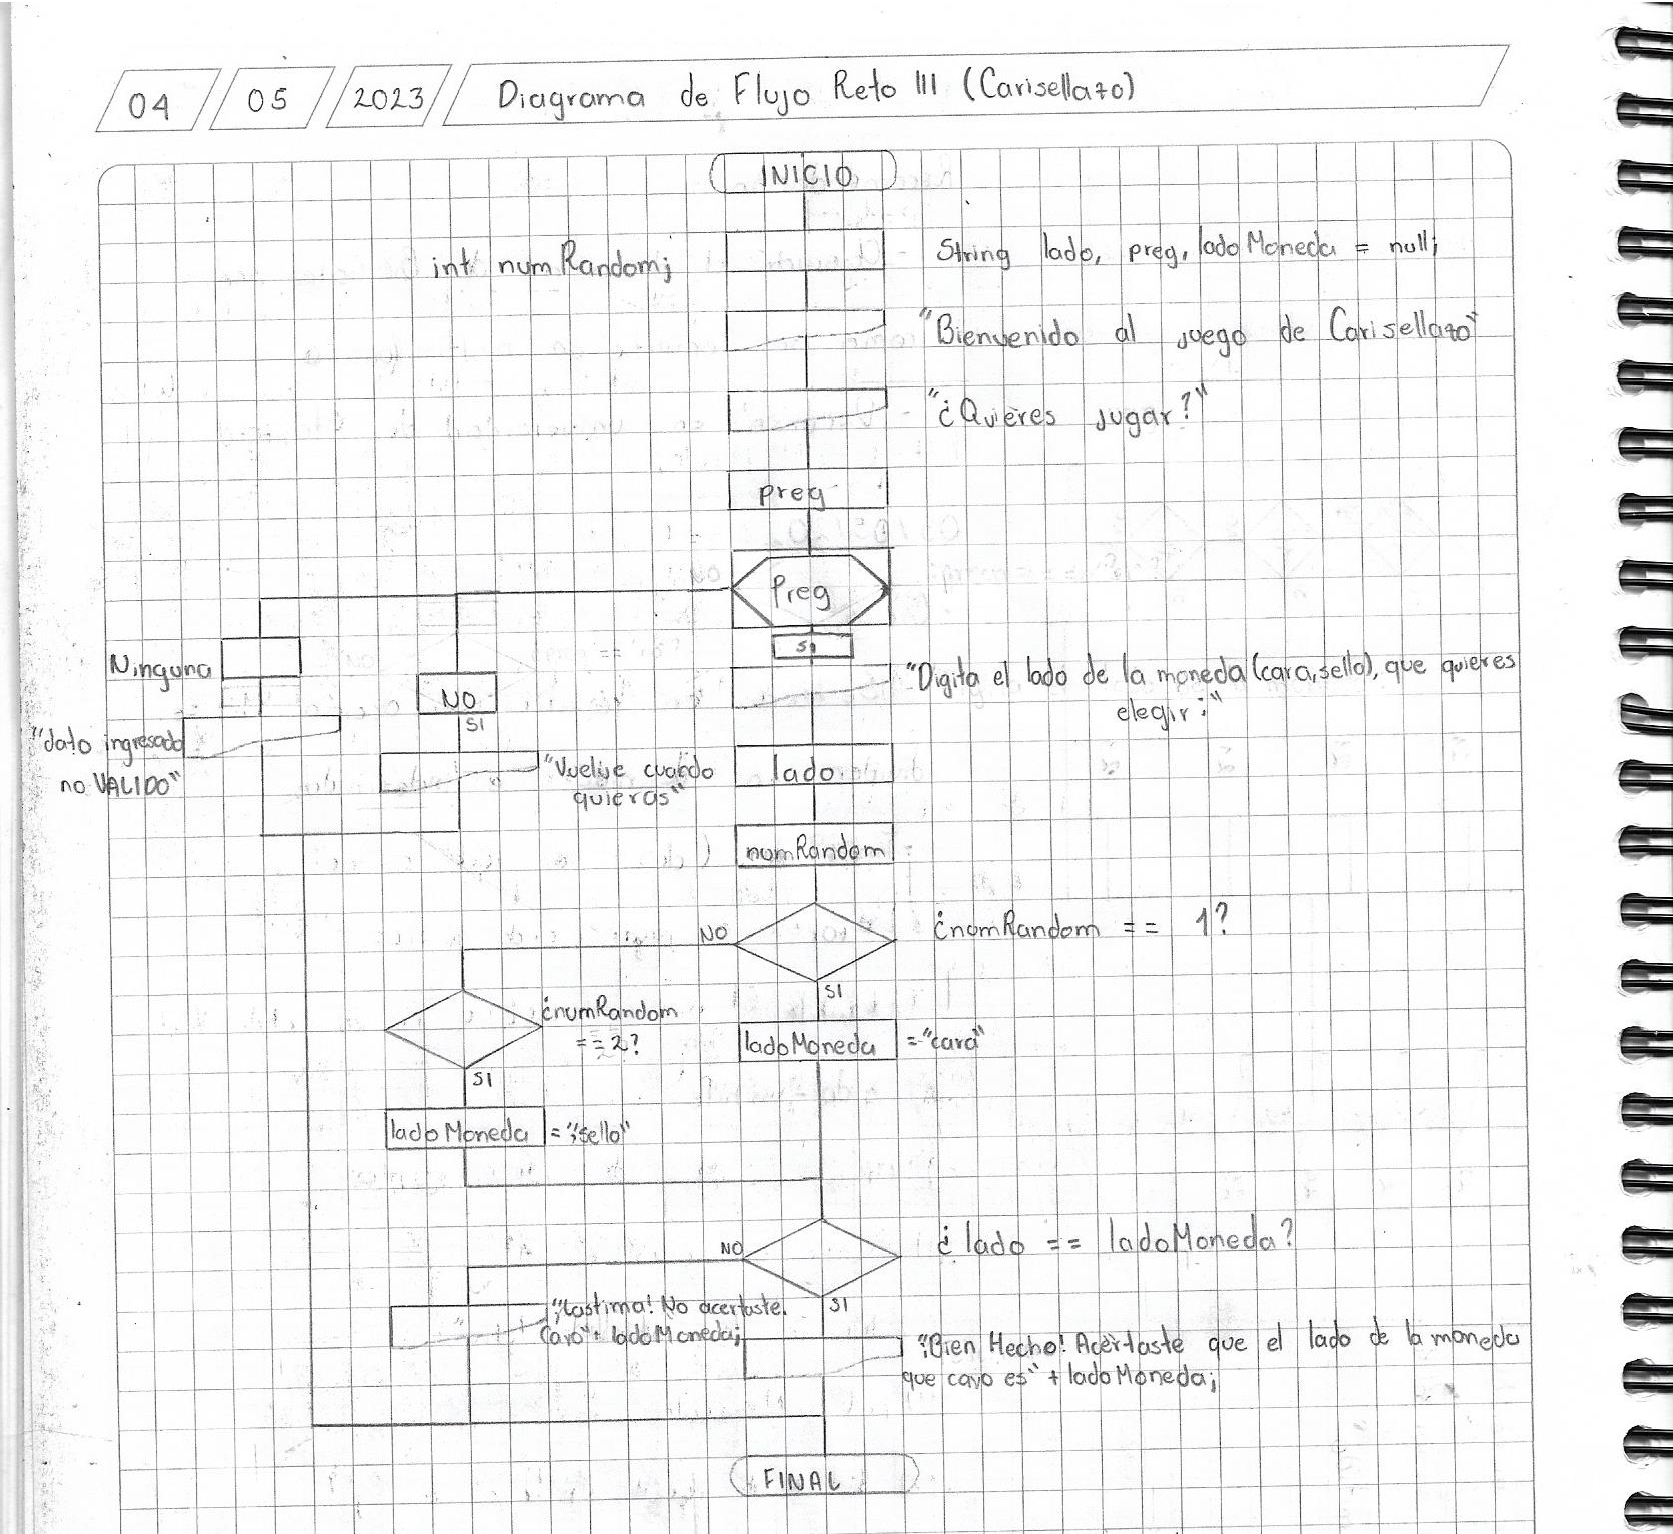 04 05 2023 Diagrama de Flujo Reto III (Carisellazo)
INICIO
int numRandom;
String lado, preg, ladoMoneda = null;
"Bienvenido al juego de Carisellazo"
"¿Quieres jugar?"
preg
Preg
SI
Ninguna
NO
SI
"Digita el lado de la moneda (cara, sello), que quieres
elegir:"
"dato ingresado
no VALIDO"
"Vuelve cuando
quieras"
lado
numRandom
NO
¿numRandom == 1?
SI
¿numRandom
== 2?
ladoMoneda = "cara"
SI
ladoMoneda = "sello"
NO
¿lado == ladoMoneda?
SI
"¡Lastima! No acertaste.
Cayo" + ladoMoneda;
"¡Bien Hecho! Acertaste que el lado de la moneda
que cayo es" + ladoMoneda;
FINAL